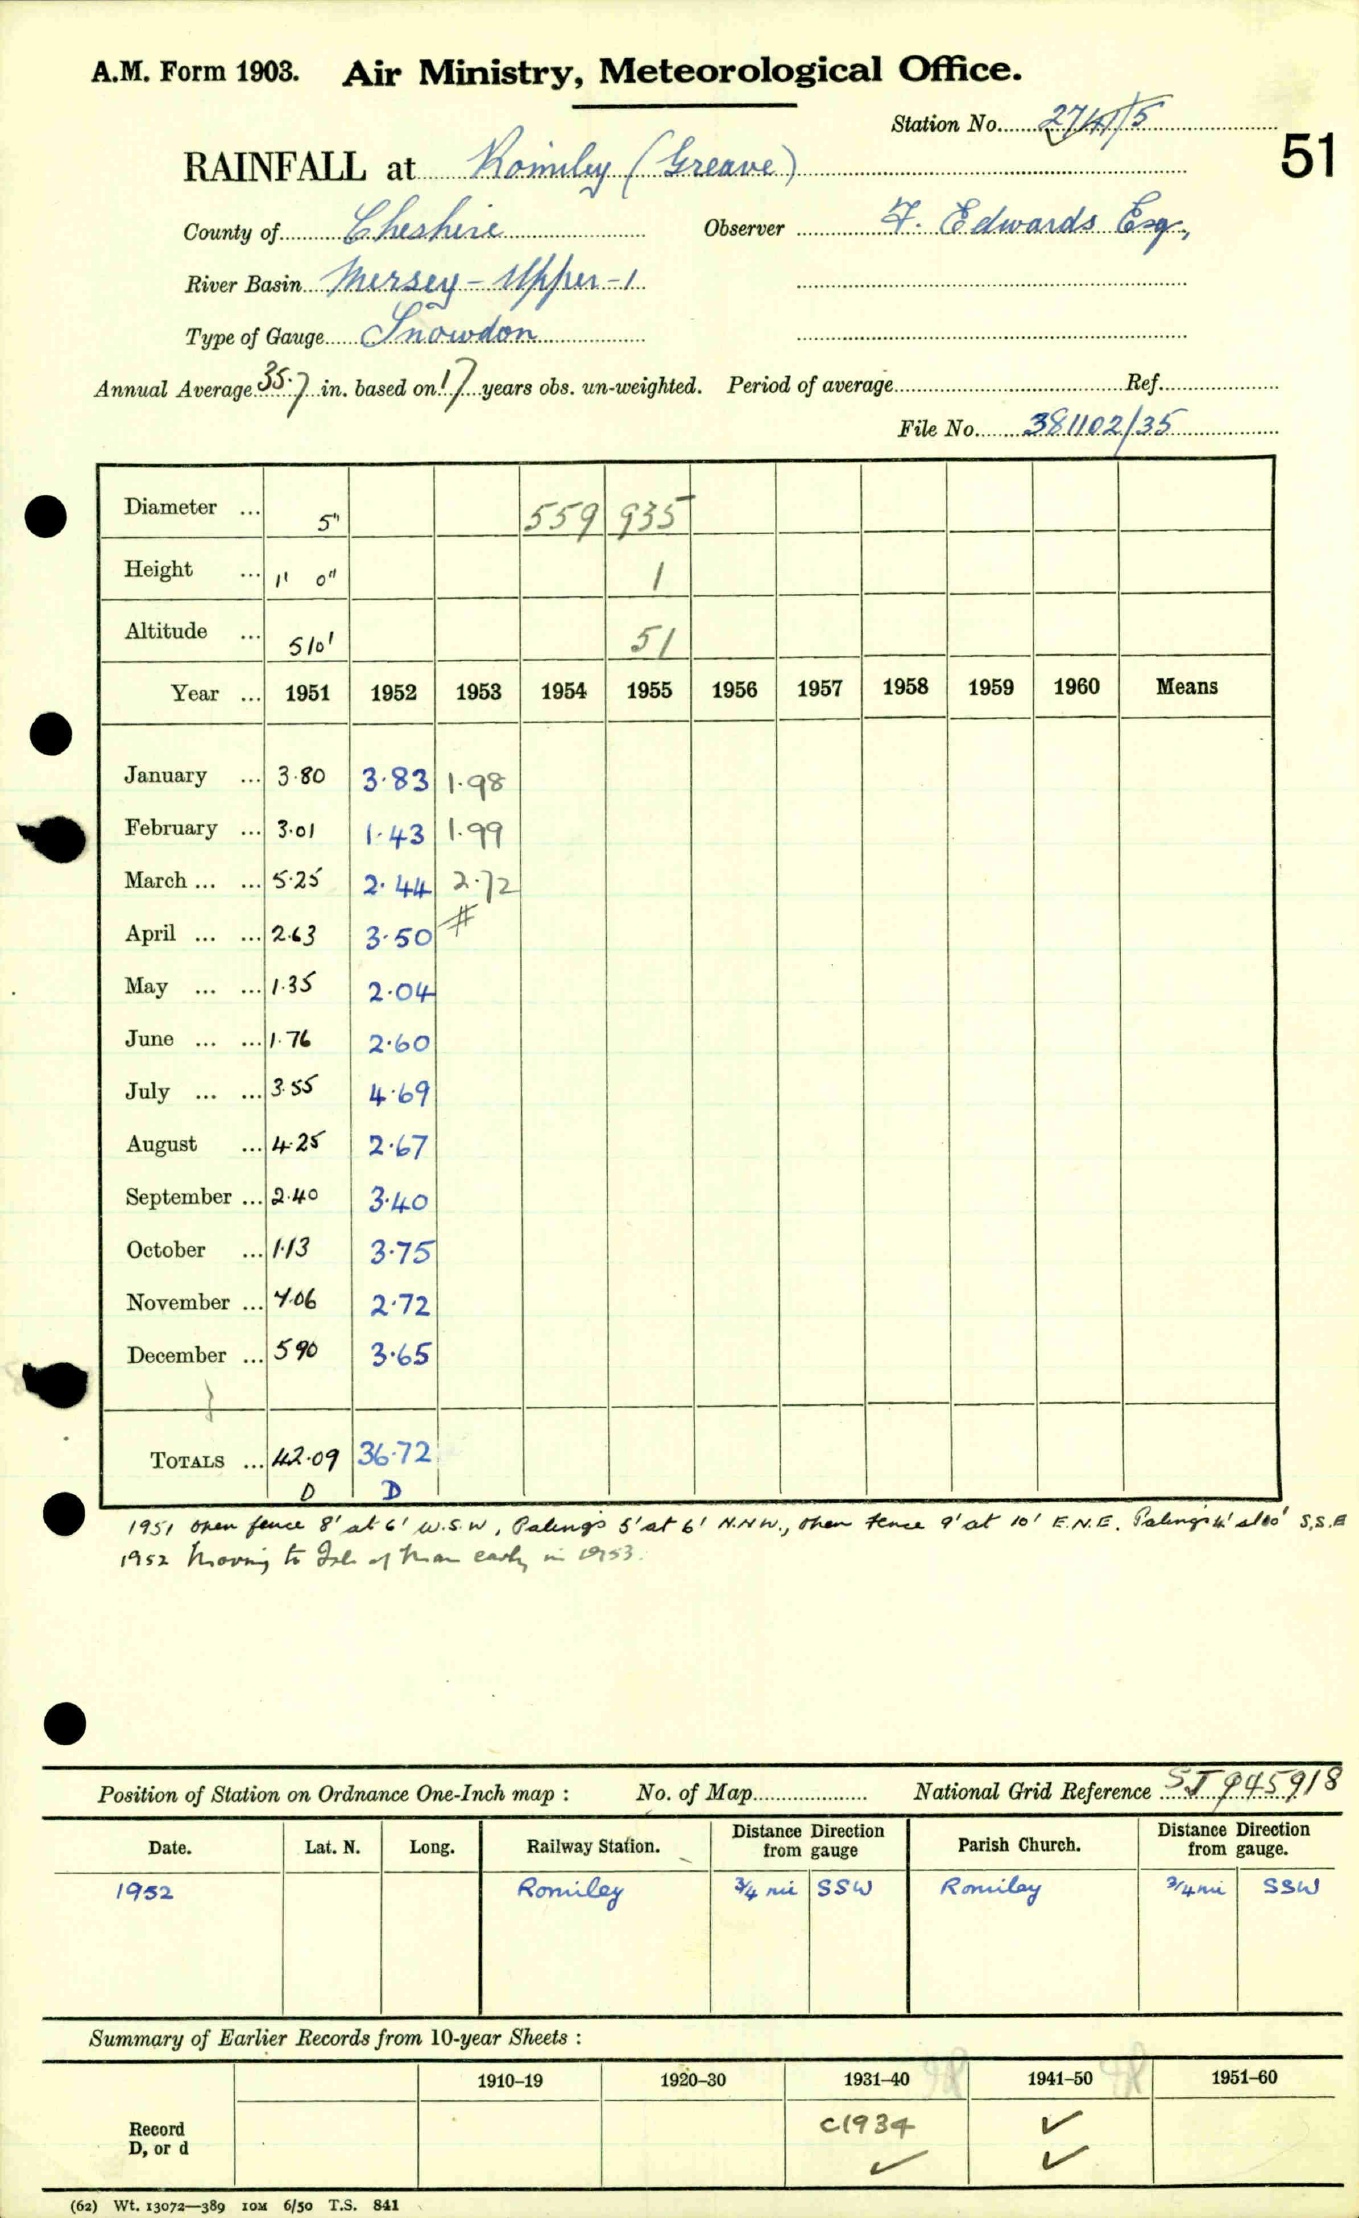 A.M. Form 1903. Air Ministry, Meteorological Office.
Station No. 2741/5
51
RAINFALL at Romiley (Greave)
County of Cheshire Observer F. Edwards Esq.,
River Basin Mersey - Upper - 1
Type of Gauge Snowdon
Annual Average 35.7 in. based on 17 years obs. un-weighted. Period of average Ref.
File No. 381102/35
Diameter ... 5" 559 935
Height ... 1' 0" 1
Altitude ... 510' 51
Year ... 1951 1952 1953 1954 1955 1956 1957 1958 1959 1960 Means
January ... 3.80 3.83 1.98
February ... 3.01 1.43 1.99
March ... ... 5.25 2.44 2.72
April ... ... 2.63 3.50 #
May ... ... 1.35 2.04
June ... ... 1.76 2.60
July ... ... 3.55 4.69
August ... 4.25 2.67
September ... 2.40 3.40
October ... 1.13 3.75
November ... 4.06 2.72
December ... 5 90 3.65
TOTALS ... 42.09 36.72
D D
1951 Open fence 8' at 6' W.S.W, Palings 5' at 6' N.N.W., Open fence 9' at 10' E.N.E. Palings 4' at 10' S.S.E
1952 Moving to Isle of Man early in 1953.
Position of Station on Ordnance One-Inch map : No. of Map National Grid Reference SJ 945918
Date. Lat. N. Long. Railway Station. Distance Direction from gauge Parish Church. Distance Direction from gauge.
1952 Romiley 3/4 mi SSW Romiley 3/4 mi SSW
Summary of Earlier Records from 10-year Sheets :
1910–19 1920–30 1931–40 1941–50 1951–60
Record D, or d c1934 ✓
✓ ✓
(62) Wt. 13072—389 10M 6/50 T.S. 841